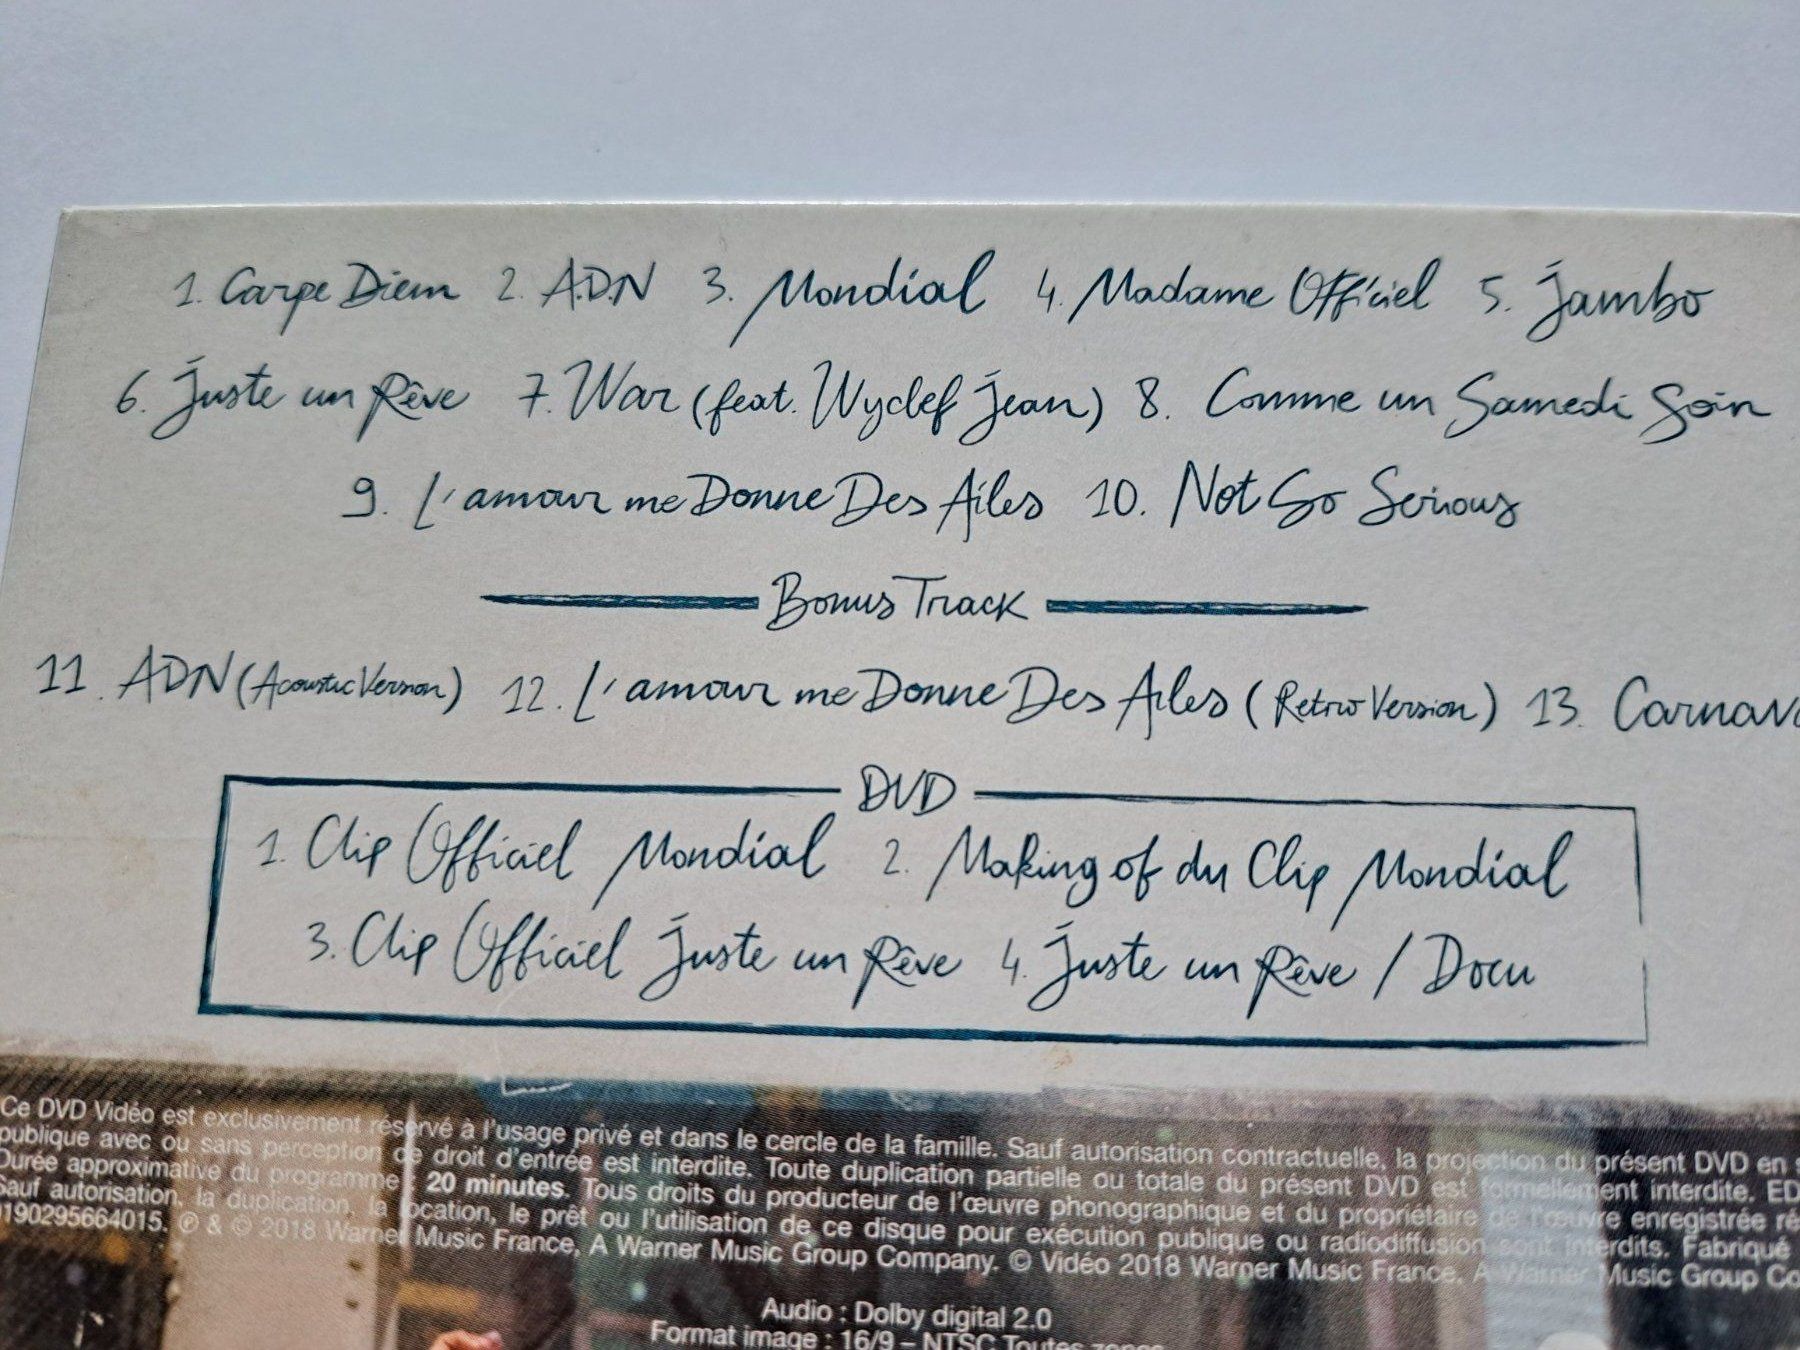 1. Carpe Diem 2. A.D.N 3. Mondial 4. Madame Officiel 5. Jambo
6. Juste un Rêve 7. War (feat. Wyclef Jean) 8. Comme un Samedi Soir
9. L'amour me Donne Des Ailes 10. Not So Serious
Bonus Track
11. ADN (Acoustic Version) 12. L'amour me Donne Des Ailes (Retro Version) 13. Carnav
DVD
1. Clip Officiel Mondial 2. Making of du Clip Mondial
3. Clip Officiel Juste un Rêve 4. Juste un Rêve / Docu
Ce DVD Vidéo est exclusivement réservé à l'usage privé et dans le cercle de la famille. Sauf autorisation contractuelle, la projection du présent DVD en
publique avec ou sans perception de droit d'entrée est interdite. Toute duplication partielle ou totale du présent DVD est formellement interdite. ED
Durée approximative du programme : 20 minutes. Tous droits du producteur de l'œuvre phonographique et du propriétaire de l'œuvre enregistrée ré
Sauf autorisation, la duplication, la location, le prêt ou l'utilisation de ce disque pour exécution publique ou radiodiffusion sont interdits. Fabriqué
0190295664015. ℗ & © 2018 Warner Music France, A Warner Music Group Company. © Vidéo 2018 Warner Music France, A Warner Music Group Co
Audio : Dolby digital 2.0
Format image : 16/9 – NTSC Toutes zones